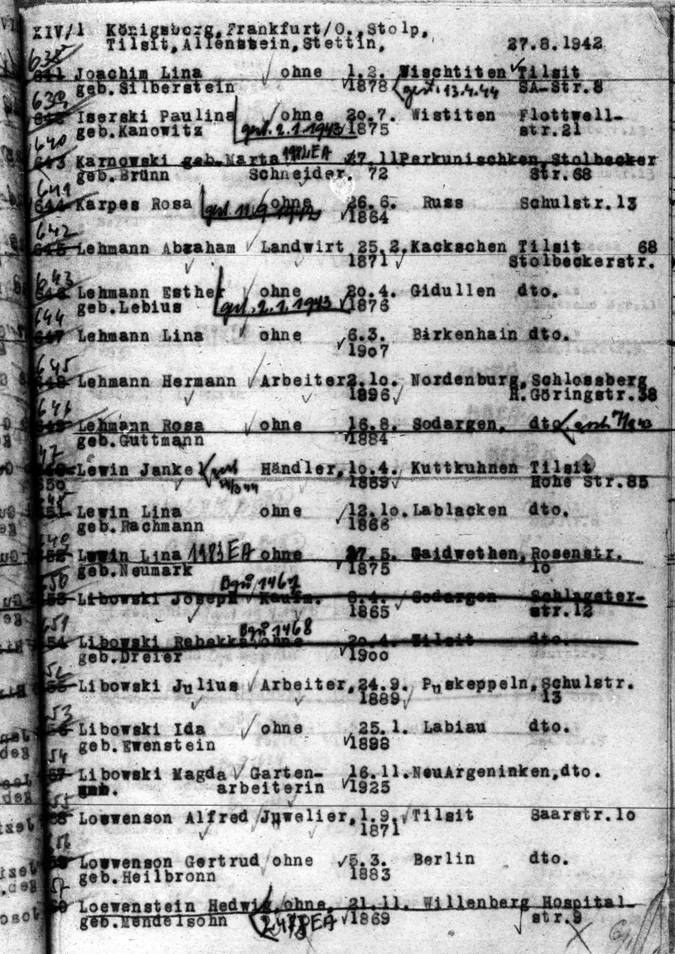 XIV/1 Königsberg, Frankfurt/O., Stolp,
Tilsit, Allenstein, Stettin, 27.8.1942
638
641 Joachim Lina ohne 1.2. Wischtiten Tilsit
geb. Silberstein 1878 gest. 13.4.44 SA-Str.8
639
642 Iserski Paulina ohne 20.7. Wistiten Flottwell-
geb. Kanowitz gest. 2.1.1943 1875 str.21
640
643 Karnowski geb. Marta 1181EA 27.11 Perkunischken, Stolbecker
geb. Brünn Schneider. 72 Str.68
641
644 Karpes Rosa ohne 26.6. Russ Schulstr.13
1864
642
645 Lehmann Abraham Landwirt 25.2. Kackschen Tilsit 68
1871 Stolbeckerstr.
643
646 Lehmann Esther ohne 20.4. Gidullen dto.
geb. Lebius gest. 2.1.1943 1876
644
647 Lehmann Lina ohne 6.3. Birkenhain dto.
1907
645
648 Lehmann Hermann Arbeiter 2.10. Nordenburg, Schlossberg
1896 H.Göringstr.38
646
649 Lehmann Rosa ohne 16.8. Sodargen, dto.
geb. Guttmann 1884
47
Lewin Jankel gest Händler, 10.4. Kuttkuhnen Tilsit
650 1889 Hohe Str.85
48
51 Lewin Lina ohne 12.10. Lablacken dto.
geb. Rachmann 1866
49
52 Lewin Lina 1181EA ohne 27.5. Gaidwethen, Rosenstr.
geb. Neumark 1875 10
50 1467
53 Libowski Joseph Kaufm. 6.4. Sodargen Schlageter-
1865 str.12
51 1468
54 Libowski Rebekka ohne 20.4. Tilsit dto.
geb. Dreier 1900
52
55 Libowski Julius Arbeiter, 24.9. Puskeppeln, Schulstr.
1889 13
53
56 Libowski Ida ohne 25.1. Labiau dto.
geb. Ewenstein 1898
54
57 Libowski Magda Garten- 16.11. NeuArgeninken, dto.
arbeiterin 1925
55
58 Loewenson Alfred Juwelier, 1.9. Tilsit Saarstr.10
1871
56
59 Loewenson Gertrud ohne 5.3. Berlin dto.
geb. Heilbronn 1883
57
60 Loewenstein Hedwig ohne, 21.11. Willenberg Hospital-
geb. Mendelsohn 1869 str.9